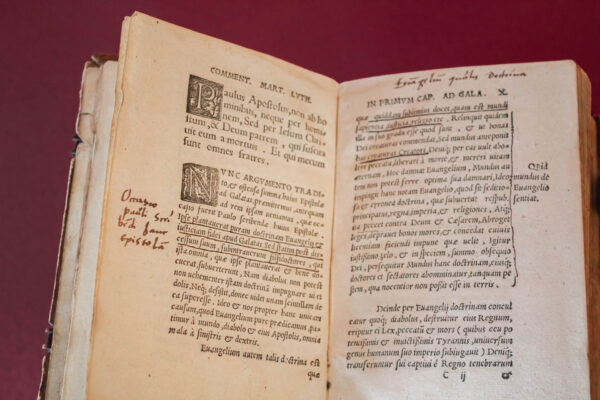 COMMENT. MART. LVTH.
Paulus Apostolus, non ab ho
minibus, neque per homi
nem, Sed per Iesum Chri
stum, & Deum patrem, qui suscita
uit eum a mortuis. Et qui mecum
sunt omnes fratres.
NVNC ARGVMENTO TRADI
to, & ostensa summa huius Epistolæ
ad Galatas, præmittemus, antequam
ad rem ipsam veniamus, quæ oc-
casio fuerit Paulo scribendæ huius Epistolæ.
Ipse plantauerat puram doctrinam Euangelij &
iusticiam fidei apud Galatas, Sed statim post dis-
cessum suum, subintrauerunt
ista omnia, quæ ipse plantauerat & bene
cuerat, subuerterunt, Nam diabolus non potest
non uehementer istam doctrinam impugnare ui et
dolis, Neq; desistit, donec uidet unam scintillam de
ea superesse. Ideo & nos propter hanc unicam
causam, quod Euangelium pure prædicamus, pa-
timur à mundo, diabolo & eius Apostolis, omnia
mala à sinistris & dextris.
Euangelium autem talis doctrina est
quæ
pauli
hanc
epistolã
doctrina
IN PRIMVM CAP. AD GALA. X.
quæ quiddam sublimius docet, quam est mundi
sapientia, iusticia, religio etc. Relinquit quidem
illa in suo gradu esse quod sunt, & ut bonas
dei creaturas commendat, Sed mundus antefert
has creaturas Creatori, Deniq; per eas uult abole
re peccata, liberari à morte, & mereri uitam
æternam. Hoc damnat Euangelium, Mundus autem
non potest ferre optima sua damnari, Ideo
impingit hanc notam Euangelio, quod sit seditio-
sa & erronea doctrina, quæ subuertat respub.
principatus, regna, imperia, & religiones,
peccet contra Deum & Cæsarem, Abroget
leges, deprauet bonos mores, & concedat cuiuis
licentiam faciendi impune quæ uelit, Igitur
iustissimo zelo, & in speciem, summo obsequio
Dei, persequitur Mundus hanc doctrinam, eiusq;
doctores et sectatores abominatur, tanquam pe-
stem, qua nocentior non possit esse in terris.
mundus de
Euangelio
sentiat.
Deinde per Euangelij doctrinam concul
catur quoq; diabolus, destruitur eius Regnum,
eripitur ei Lex, peccatũ & mors (quibus ceu po
tentissimis & inuictissimis Tyrannis, uniuersum
genus humanum suo imperio subiugauit) Deniq;
transferuntur sui captiui è Regno tenebrarum
C ij &